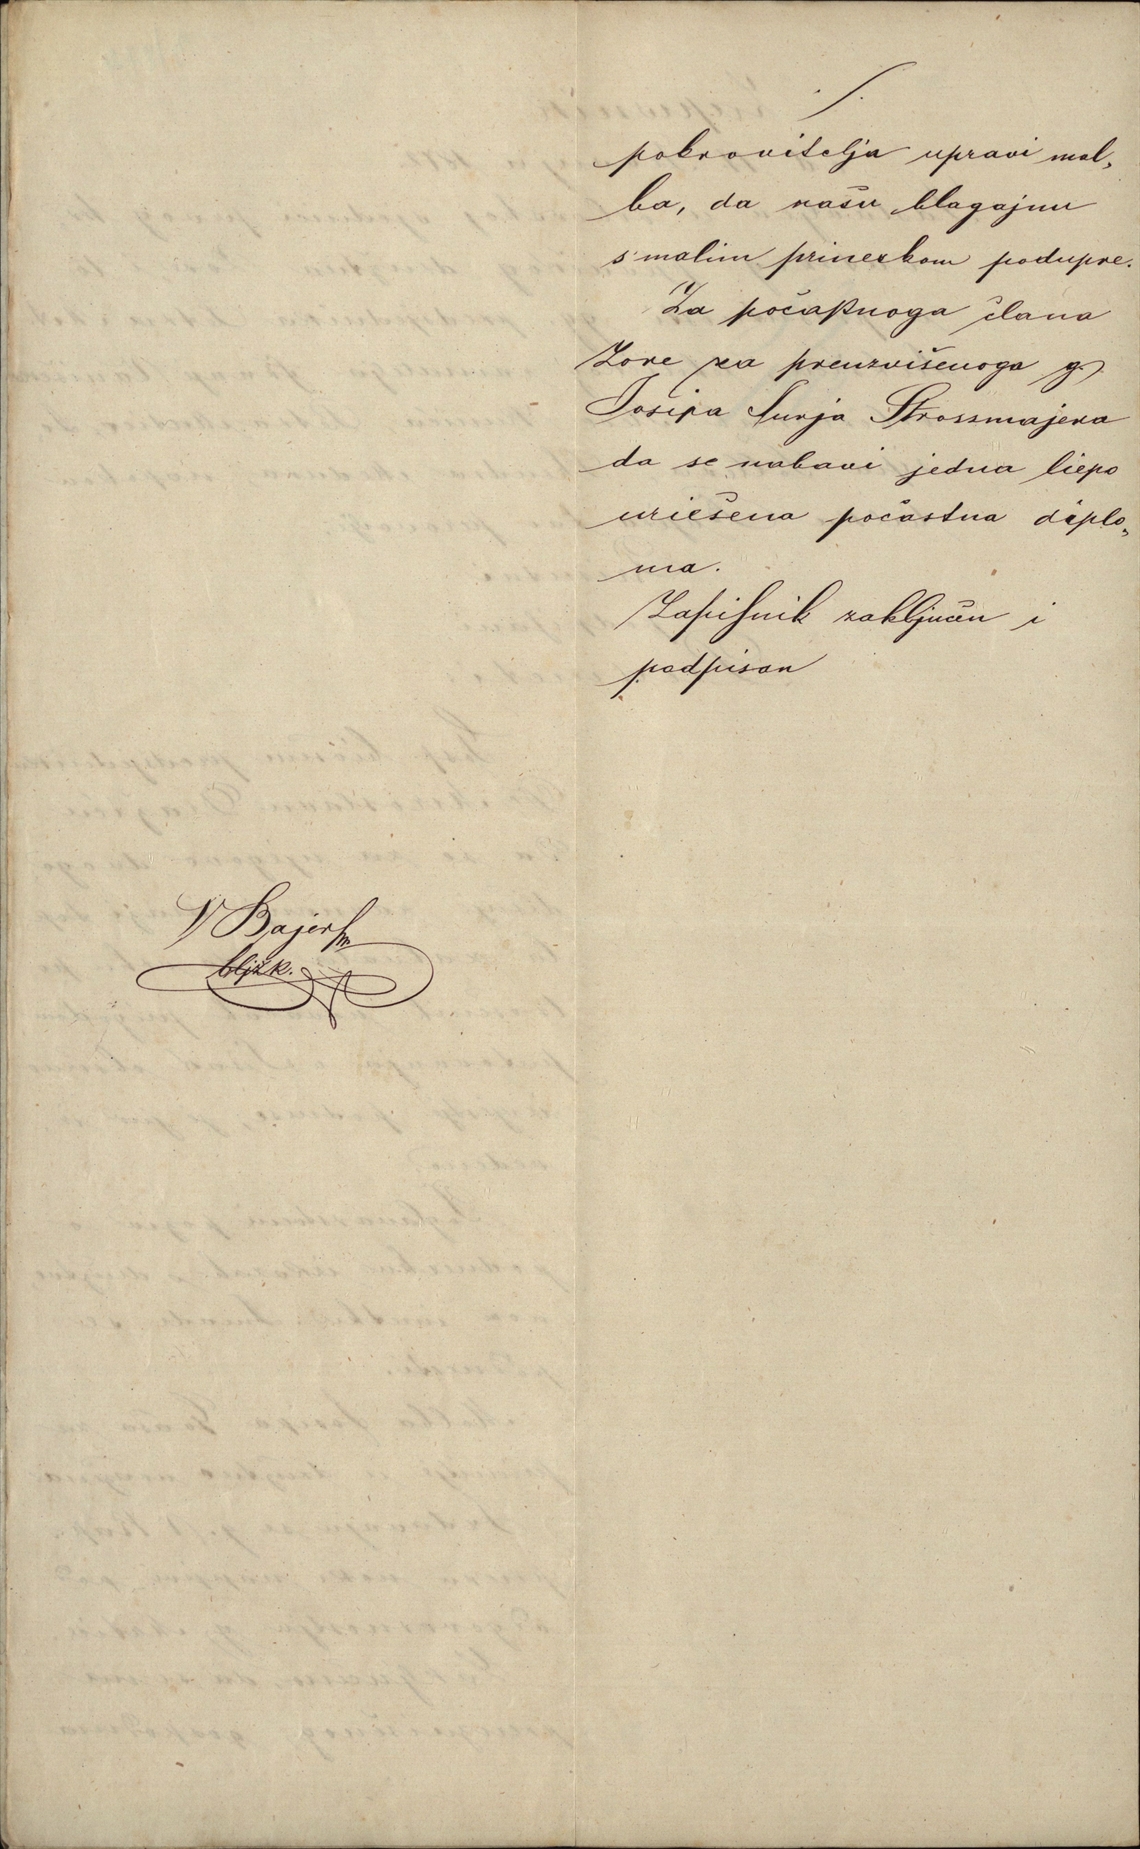 ./.
pokrovitelja upravi mol„
ba, da našu blagajnu
s malim prinezkom podupre.
Za počastnoga člana
Zore za preuzvišenoga g.
Josipa Jurja Strossmajera
da se nabavi jedna liepo
uriešena počastna diplo„
ma.
Zapisnik zaključen i
podpisan
V Bajer
bljžk.